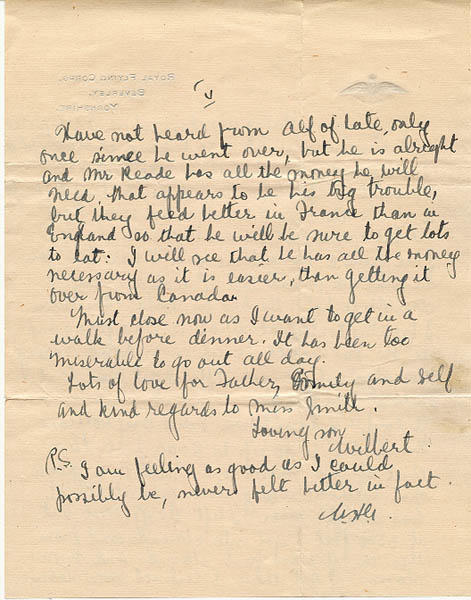 ROYAL FLYING CORPS.
BEVERLEY,
YORKSHIRE.
V
Have not heard from Alf of late, only
once since he went over, but he is alright
and Mr Reade has all the money he will
need, that appears to be his big trouble,
but they feed better in France than in
England so that he will be sure to get lots
to eat: I will see that he has all the money
necessary as it is easier, than getting it
over from Canada.
Must close now as I want to get in a
walk before dinner. It has been too
miserable to go out all day.
Lots of love for Father, and self
and kind regards to Miss Smith.
Loving son
Wilbert.
P.S. I am feeling as good as I could
possibly be, never felt better in fact.